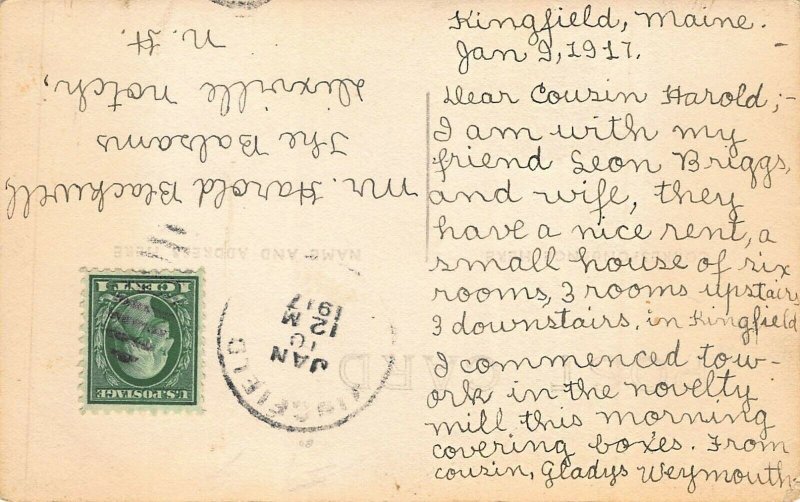 Kingfield, Maine.
Jan 9, 1917.
Dear Cousin Harold;-
I am with my
friend Leon Briggs,
and wife, they
have a nice rent, a
small house of six
rooms, 3 rooms upstairs
3 downstairs, in Kingfield
I commenced to w-
ork in the novelty
mill this morning
covering boxes. From
cousin, Gladys Weymouth-
Mr. Harold Blackwell,
The Balsams
Dixville notch,
N. H.
U.S. POSTAGE
1 CENT 1
KINGFIELD
JAN
10
12 M
1917
NAME AND ADDRESS HERE
HERE
CARD